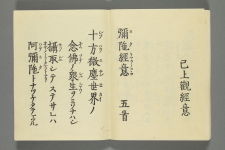 已上觀經意
彌陀經意 五首
十方微塵世界ノ
念佛ノ衆生ヲミソナハシ
攝取シテステサレハ
阿彌陀トナツケタテマツル